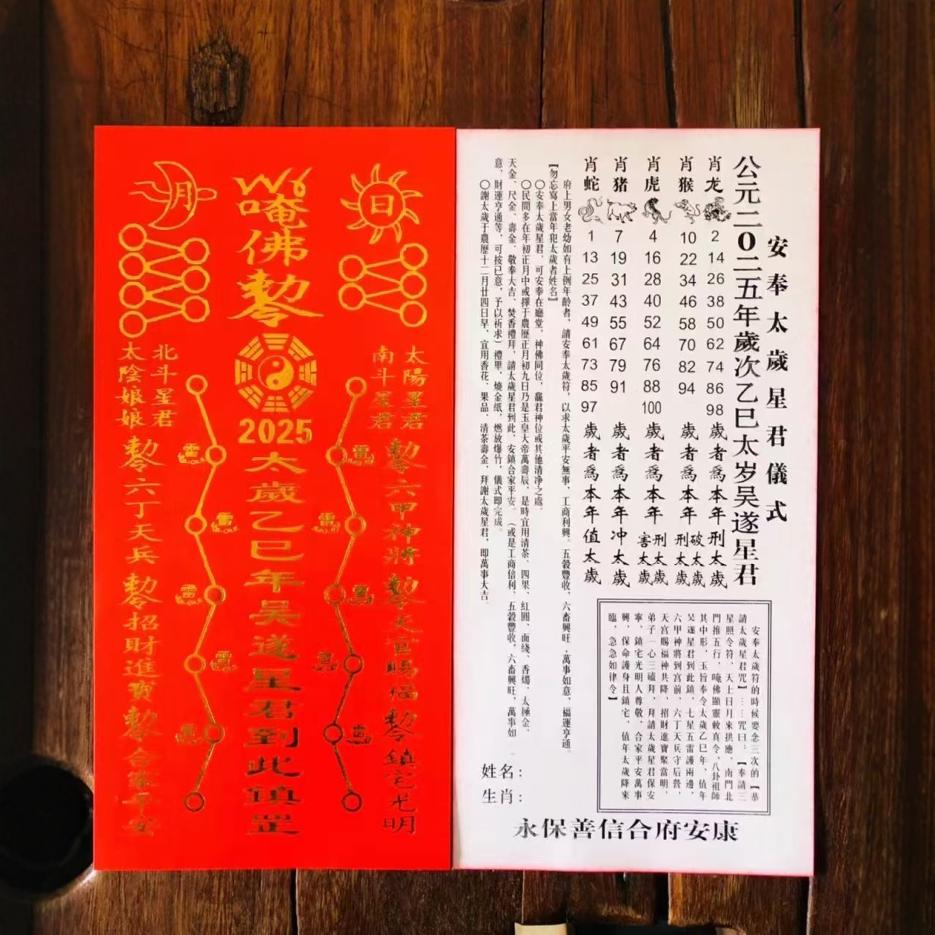 日
月
唵佛勅令
2025
太歲乙巳年吴遂星君到此鎮罡
太陽星君
南斗星君
北斗星君
太陰娘娘
勅令六甲神將勅令天官賜福勅令鎮宅光明
勅令六丁天兵勅令招財進寶勅令合家平安
雷
雷
雷
雷
雷
雷
雷
雷
雷
雷
安奉太歲星君儀式
公元二0二五年歲次乙巳太岁吴遂星君
肖龙 2 14 26 38 50 62 74 86 98 歲者為本年刑太歲破太歲
肖猴 10 22 34 46 58 70 82 94 歲者為本年刑太歲
肖虎 4 16 28 40 52 64 76 88 100 歲者為本年刑太歲害太歲
肖猪 7 19 31 43 55 67 79 91 歲者為本年冲太歲
肖蛇 1 13 25 37 49 61 73 85 97 歲者為本年值太歲
府上男女老幼如有上例年齡者，請安奉太歲符，以求太歲平安無事，工商利興，五穀豐收，六畜興旺，萬事如意，福運亨通。
【勿忘寫上當年犯太歲者姓名】
〇安奉太歲星君，可安奉在廳堂，神佛同位，竈君神位或其他清净之處。
〇民間多在年初正月中或擇于農歷正月初九日乃是玉皇大帝萬壽辰，是時宜用清茶、四果、紅圓、面綫、香燭、太極金、
天金、尺金、壽金、敬奉大吉、焚香禮拜，請太歲星君到此，安鎮合家平安。（或是工商信利，五穀豐收，六畜興旺，萬事如
意，財運亨通等，可按已意，予以祈求）禮畢，燒金紙，燃放爆竹，儀式即完成。
〇謝太歲于農歷十二月廿四日早，宜用香花、果品、清茶壽金，拜謝太歲星君，即萬事大吉。
安奉太歲符的時候要念三次的【恭
請太歲星君咒】……咒曰：【奉請三
星照令符，天上日月來拱應，南門北
門推五行，唵佛顯靈敕真令，八卦祖師
其中形，玉旨奉令太歲乙巳年，值年
吴遂星君到此鎮，七星五雷護兩邊，
六甲神將到宫前，六丁天兵守后營，
天官賜福神共降，招財進寶聚當明，
弟子一心三磕拜，拜請太歲星君保安
寧，鎮宅光明人尊敬，合家平安萬事
興，保命護身且鎮宅，值年太歲降來
臨，急急如律令】
姓名：
生肖：
永保善信合府安康